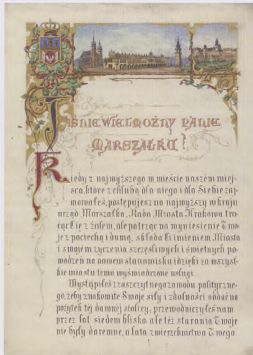 JAŚNIE WIELMOŻNY PANIE
MARSZAŁKU!
Kiedy z najwyższego w mieście naszem miej-
sca, które z chlubą dla niego i dla Siebie zaj-
mowałeś, postępujesz na najwyższy w kraju
urząd Marszałka, Rada Miasta Krakowa
cię z żalem, ale patrząc na wyniesienie Two-
je z pociechą i dumą, składa Ci imieniem Miasta
i swojem życzenia szczęśliwych i świetnych po-
wodzeń na nowem stanowisku i dzięki za wszyst-
kie miastu temu wyświadczone usługi.
Wystąpiłeś z zaszczytnego zawodu polityczne-
go, żeby znakomite Swoje siły i zdolności oddać na
pożytek tej dawnej stolicy, przewodniczyłeś nam
przez lat siedem blisko, ale też starania Twoje
nie były daremne, a lata zwierzchnictwa Twego